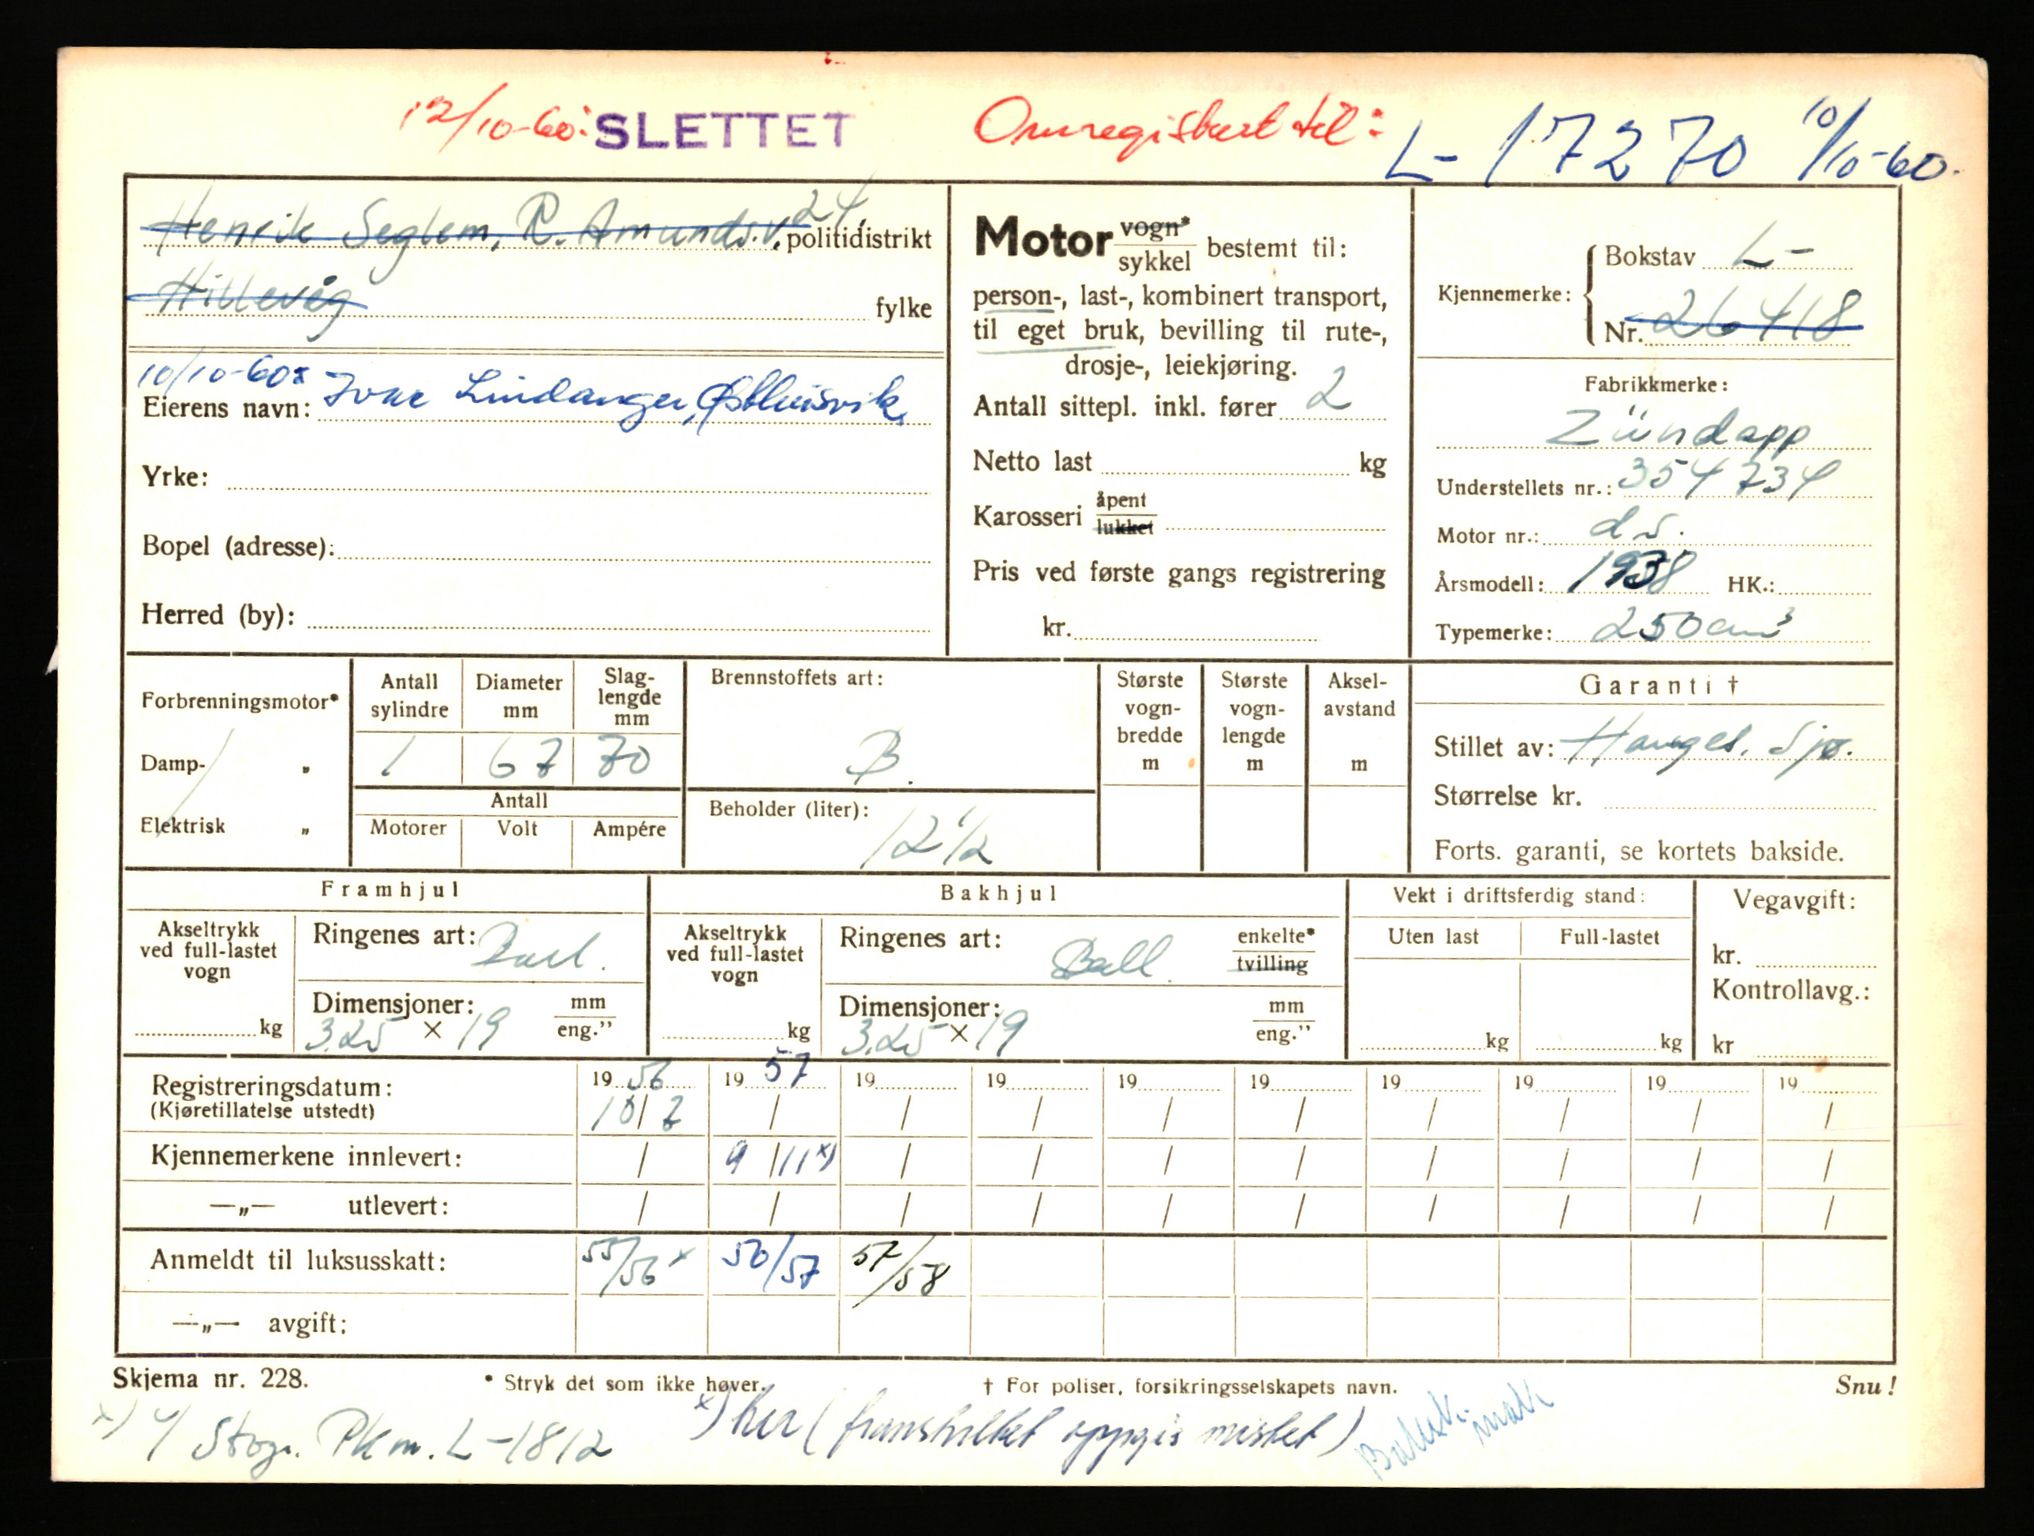 12/10-60: SLETTET Omregistrert til: L-17270 10/10-60.
Henrik Seglem, R. Amundsv. 24, politidistrikt
Hillevåg fylke
10/10-60x
Eierens navn: Ivar Lindanger,
Yrke:
Bopel (adresse):
Herred (by):
Motor vogn* sykkel bestemt til:
person-, last-, kombinert transport,
til eget bruk, bevilling til rute-,
drosje-, leiekjøring.
Antall sittepl. inkl. fører 2
Netto last kg
Karosseri åpent lukket
Pris ved første gangs registrering
kr.
Kjennemerke: Bokstav L-
Nr. 26418
Fabrikkmerke:
Zündapp
Understellets nr.: 354734
Motor nr.: ds.
Årsmodell: 1938 HK.:
Typemerke: 250 cm³
Forbrenningsmotor*
Damp- „
Elektrisk „
Antall sylindre Diameter mm Slag-lengde mm
1 67 70
Antall
Motorer Volt Ampére
Brennstoffets art:
B.
Beholder (liter):
12 1/2
Største vogn-bredde m
Største vogn-lengde m
Aksel-avstand m
Garanti †
Stillet av: Hauges. Sjø.
Størrelse kr.
Forts. garanti, se kortets bakside.
Framhjul
Akseltrykk ved full-lastet vogn
kg
Ringenes art:
Dimensjoner: mm eng.”
3.25 × 19
Bakhjul
Akseltrykk ved full-lastet vogn
kg
Ringenes art: Ball. enkelte* tvilling
Dimensjoner: mm eng.”
3.25 × 19
Vekt i driftsferdig stand:
Uten last Full-lastet
kg kg
Vegavgift:
kr.
Kontrollavg.:
kr
Registreringsdatum: 19 56 19 57 19 19 19 19 19 19 19 19
(Kjøretillatelse utstedt) 10/2 / / / / / / / / /
Kjennemerkene innlevert: / 9/11 x) / / / / / / / /
—„— utlevert: / / / / / / / / / /
Anmeldt til luksusskatt: 55/56 x 56/57 57/58
—„— avgift:
Skjema nr. 228. * Stryk det som ikke høver. † For poliser, forsikringsselskapets navn. Snu!
x) 4/ Stog. Pkm. L-1812 x) Ker (framskiltet oppgis mistet)